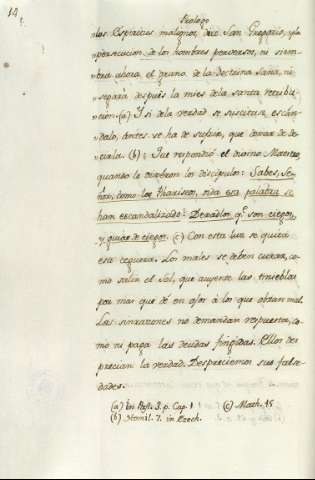 14
Prologo
"los Espiritus malignos, dice San Gregorio, y la
"persecucion de los hombres perversos, ni siem-
"bra ahora el grano de la doctrina sana, ni
"segará despues la mies de la santa retribu-
"cion. (a) Y si de la verdad se suscita escán-
"dalo, antes se ha de sufrir, que dexar de de-
"cirla. (b) : Que respondió el divino Maestro,
quando le dixeron los discipulos: Sabes, Se-
ñor, como los Phariseos, oida esa palabra se
han escandalizado? Dexadlos, qe. son ciegos,
y guias de ciegos. (c) Con esta luz se quita
esta ceguera. Los males se deben curar, co-
mo salir el Sol, que ausente las tinieblas
por mas que dé en ojos á los que obran mal.
Las sinrazones no demandan respuesta, co-
mo ni paga las deudas fingidas. Ellos des-
precian la verdad. Despreciemos sus false-
dades.
(a) In Past. 3. p. Cap. 1 (c) Math. 15
(b) Homil. 7. in Ezech.